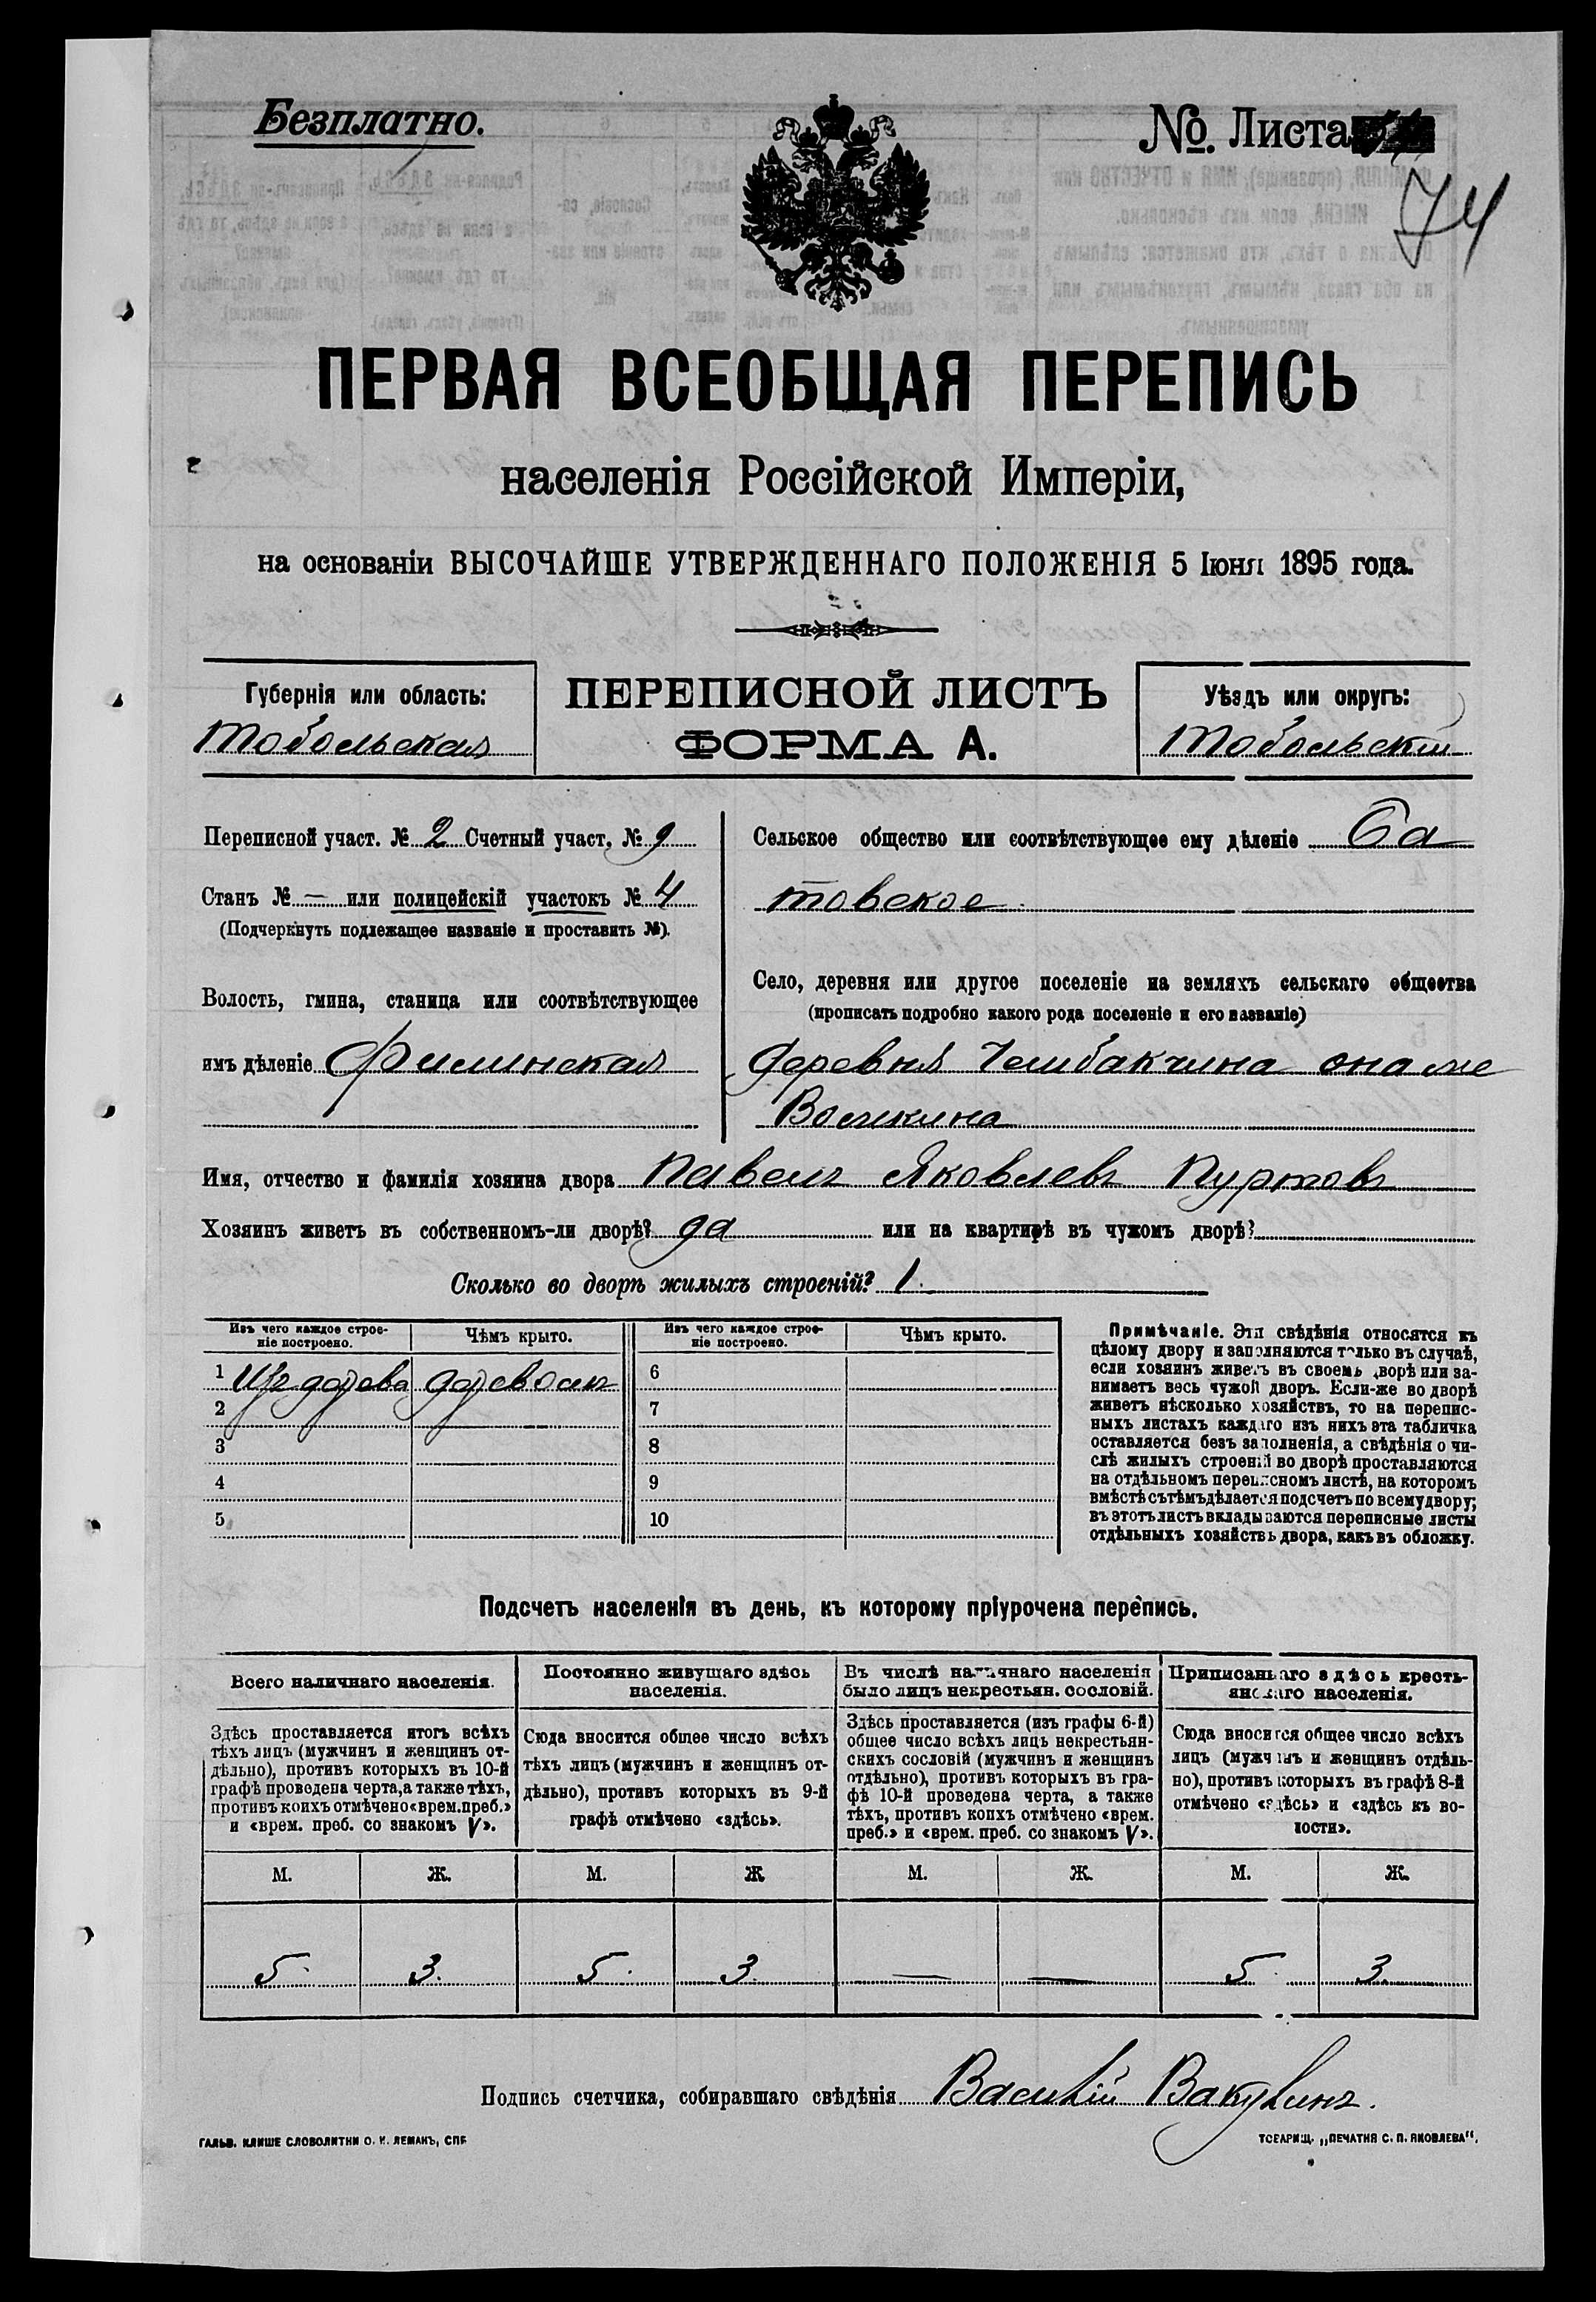 Безплатно.
№. Листа
74
ПЕРВАЯ ВСЕОБЩАЯ ПЕРЕПИСЬ
населенія Россійской Имперіи,
на основаніи ВЫСОЧАЙШЕ УТВЕРЖДЕННАГО ПОЛОЖЕНІЯ 5 Іюня 1895 года.
Губернія или область:
Тобольская
ПЕРЕПИСНОЙ ЛИСТЪ
ФОРМА А.
Уѣздъ или округъ:
Тобольскій
Переписной участ. № 2 Счетный участ. № 9
Станъ № — или полицейскій участокъ № 4
(Подчеркнуть подлежащее названіе и проставить №).
Волость, гмина, станица или соотвѣтствующее
имъ дѣленіе Филинская
Сельское общество или соотвѣтствующее ему дѣленіе Ба
товское
Село, деревня или другое поселеніе на земляхъ сельскаго общества
(прописать подробно какого рода поселеніе и его названіе)
деревня Чембакчина она же
Волкина
Имя, отчество и фамилія хозяина двора Павелъ Яковлевъ Пуртовъ
Хозяинъ живетъ въ собственномъ-ли дворѣ? да или на квартирѣ въ чужомъ дворѣ?
Сколько во дворѣ жилыхъ строеній? 1.
Изъ чего каждое строе-
ніе построено.
Чѣмъ крыто.
Изъ чего каждое строе-
ніе построено.
Чѣмъ крыто.
1 Изъ дерева деревомъ
2
3
4
5
6
7
8
9
10
Примѣчаніе. Эти свѣдѣнія относятся къ
цѣлому двору и заполняются только въ случаѣ,
если хозяинъ живетъ въ своемъ дворѣ или за-
нимаетъ весь чужой дворъ. Если-же во дворѣ
живетъ нѣсколько хозяйствъ, то на перепис-
ныхъ листахъ каждаго изъ нихъ эта табличка
оставляется безъ заполненія, а свѣдѣнія о чи-
слѣ жилыхъ строеній во дворѣ проставляются
на отдѣльномъ переписномъ листѣ, на которомъ
вмѣстѣ съ тѣмъ дѣлается подсчетъ по всему двору;
въ этотъ листъ вкладываются переписные листы
отдѣльныхъ хозяйствъ двора, какъ въ обложку.
Подсчетъ населенія въ день, къ которому пріурочена перепись.
Всего наличнаго населенія.
Здѣсь проставляется итогъ всѣхъ
тѣхъ лицъ (мужчинъ и женщинъ от-
дѣльно), противъ которыхъ въ 10-й
графѣ проведена черта, а также тѣхъ,
противъ коихъ отмѣчено «врем. преб.»
и «врем. преб. со знакомъ V».
Постоянно живущаго здѣсь
населенія.
Сюда вносится общее число всѣхъ
тѣхъ лицъ (мужчинъ и женщинъ от-
дѣльно), противъ которыхъ въ 9-й
графѣ отмѣчено «здѣсь».
Въ числѣ наличнаго населенія
было лицъ некрестьян. сословій.
Здѣсь проставляется (изъ графы 6-й)
общее число всѣхъ лицъ некрестьян-
скихъ сословій (мужчинъ и женщинъ
отдѣльно), противъ которыхъ въ гра-
фѣ 10-й проведена черта, а также
тѣхъ, противъ коихъ отмѣчено «врем.
преб.» и «врем. преб. со знакомъ V».
Приписаннаго здѣсь кресть-
янскаго населенія.
Сюда вносится общее число всѣхъ
лицъ (мужчинъ и женщинъ отдѣль-
но), противъ которыхъ въ графѣ 8-й
отмѣчено «здѣсь» и «здѣсь къ во-
лости».
М. Ж. М. Ж М. Ж. М. Ж.
5 3. 5 3 — — 5 3
Подпись счетчика, собиравшаго свѣдѣнія Василій Вакулинъ.
ГАЛЬВ. КЛИШЕ СЛОВОЛИТНИ О. И. ЛЕМАНЪ, СПБ
ТОВАРИЩ. „ПЕЧАТНЯ С. П. ЯКОВЛЕВА“.